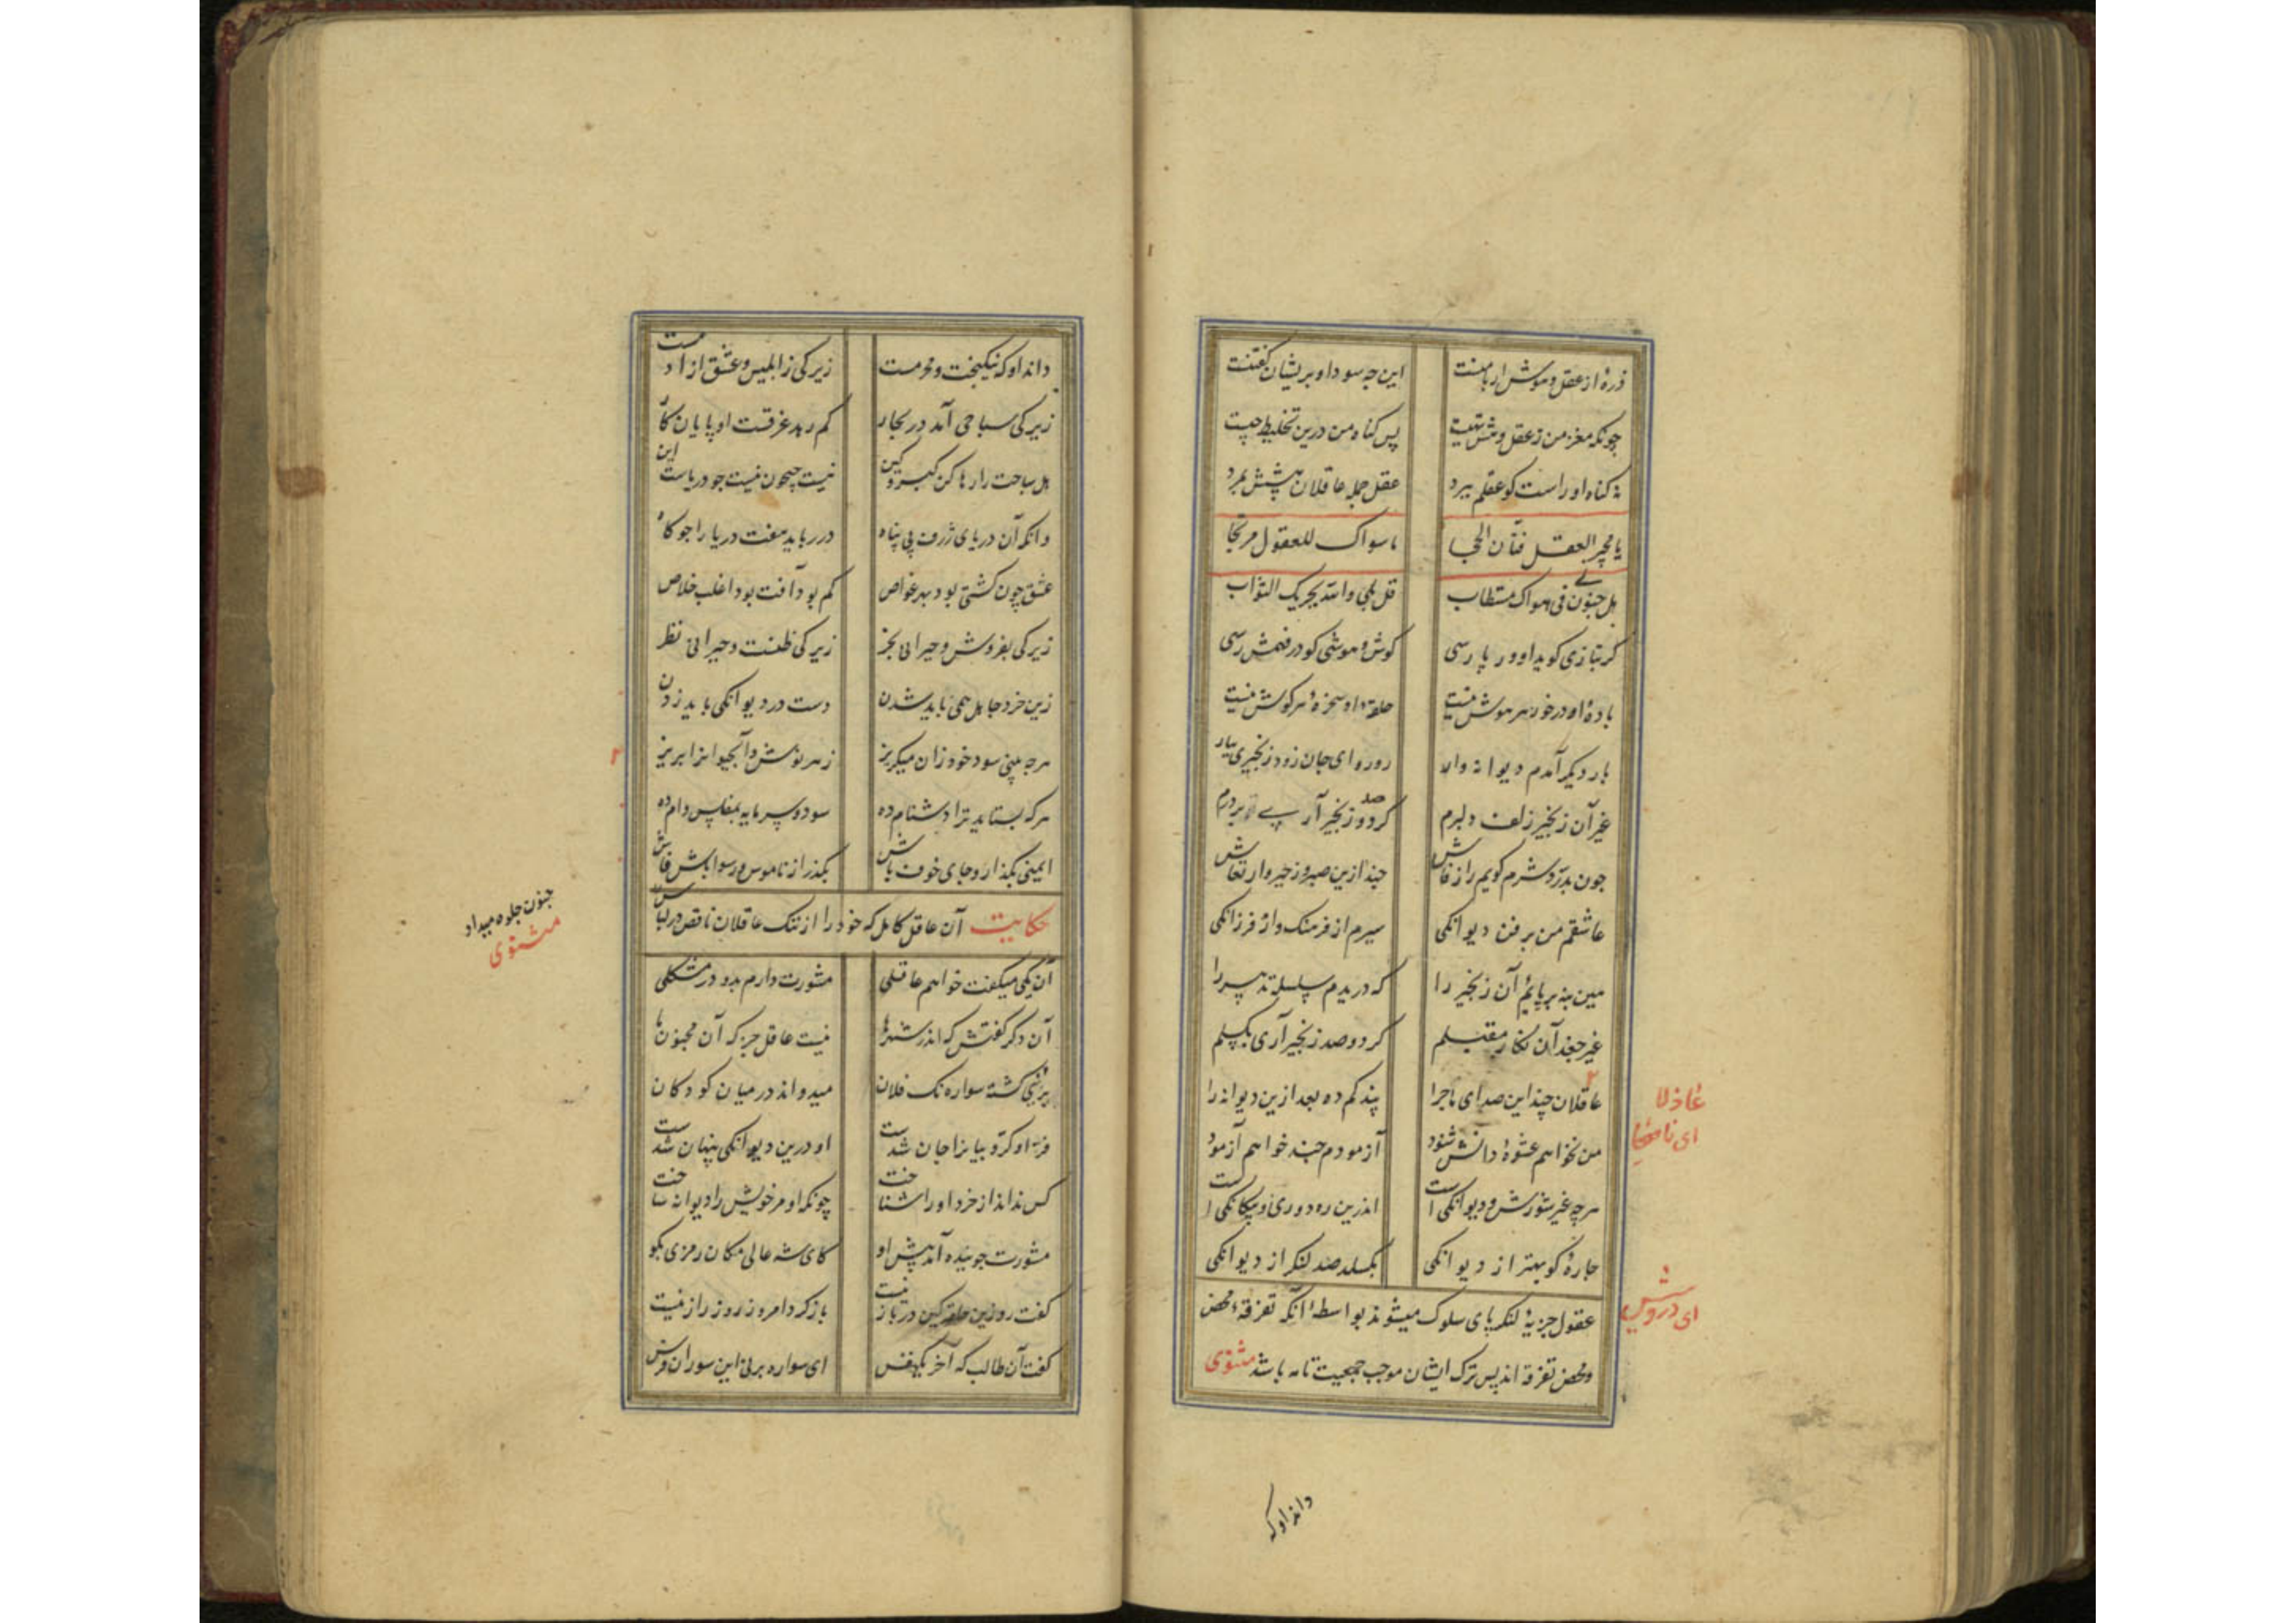 ذرهٔ از عقل و هوش ار با منست این چه سودا و پریشان گفتنست
چونکه مغز من ز عقل و هش تهیست پس کناه من درین تخلیط چیست
نه کناه اوراست کو عقلم ببرد عقل جمله عاقلان پیشش بمرد
یا مجیر العقل فتان الحجا ما سواک للعقول مرتجا
بل جنونی فی هواک مستطاب قل بلی والله یجزیک الثواب
کر بتازی کوید او ور پارسی کوش و هوشی کو در فهمش رسی
بادهٔ او درخور هر هوش نیست حلقهٔ او سخرهٔ هر کوش نیست
بار دیکر آمدم دیوانه وار رو رو ای جان زود زنجیری بیار
غیر آن زنجیر زلف دلبرم کر دو صد زنجیر آری بر درم
چون بدرد شرم کویم راز فاش چند ازین صبر و زحیر و ارتعاش
عاشقم من بر فن دیوانکی سیرم از فرهنک و از فرزانکی
هین بنه بر پایم آن زنجیر را که دریدم سلسله تدبیر را
غیر جعد آن نکار مقبلم کر دو صد زنجیر آری بکسلم
عاقلان چند این صدای ماجرا پند کم ده بعد ازین دیوانه را
عاذلا
من نخواهم عشوهٔ دانش شنود آزمودم چند خواهم آزمود
ای ناصحا
هرچه غیر شورش و دیوانکی است اندرین ره دوری و بیکانکی است
چارهٔ کو بهتر از دیوانکی بکسلد صد لنکر از دیوانکی
عقول جزیهٔ لنکر پای سلوک میشوند بواسطهٔ آنکه تفرقهٔ محض
ای درویش
و محض تفرقه اند پس ترک ایشان موجب جمعیت تامه باشد مثنوی
داند او که
داند او که نیکبخت و محرمست زیرکی ز ابلیس و عشق از ادمست
زیرکی سباحی آمد در بحار کم رهد غرقست او پایان کار
هل سباحت را رها کن کبر و کین نیست جیحون نیست جو دریاست این
وانکه آن دریای ژرف بی پناه در رباید هفت دریا را چو کاه
عشق چون کشتی بود بهر خواص کم بود آفت بود اغلب خلاص
زیرکی بفروش و حیرانی بخر زیرکی ظنست و حیرانی نظر
زین خرد جاهل همی باید شدن دست در دیوانکی باید زدن
هرچه بینی سود خود زان میکریز زهر نوش و آب حیوانرا بریز
هرکه بستاید ترا دشنام ده سود و سرمایه بمفلس وام ده
ایمنی بکذار و جای خوف باش بکذر از ناموس و رسوا باش فاش
حکایت آن عاقل کامل که خود را از ننک عاقلان ناقص در لباس
جنون جلوه میداد
مثنوی
آن یکی میکفت خواهم عاقلی مشورت دارم بدو در مشکلی
آن دکر کفتش که اندر شهر ما نیست عاقل جز که آن مجنون نما
بر نئی کشته سواره نک فلان میدواند در میان کودکان
فر او کروبیانرا جان شدست او درین دیوانکی پنهان شدست
کس نداند از خرد او را شناخت چونکه او مر خویش را دیوانه ساخت
مشورت جوینده آمد پیش او کای شه عالی مکان رمزی بکو
کفت رو زین حلقه کین در باز نیست بازکرد امروز روز راز نیست
کفت آن طالب که آخر یکنفس ای سواره بر نی این سو ران فرس